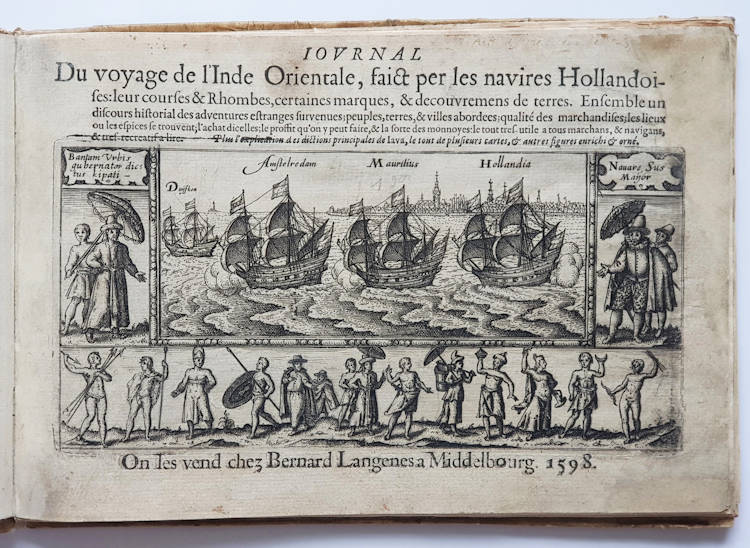 IOVRNAL
Du voyage de l'Inde Orientale, faict per les navires Hollandoi-
ses: leur courses & Rhombes, certaines marques, & decouvremens de terres. Ensemble un
discours historial des adventures estranges survenues; peuples, terres, & villes abordees; qualité des marchandises; les lieux
ou les espices se trouvent, l'achat dicelles; le proffit qu'on y peut faire, & la sorte des monnoyes: le tout tres-utile a tous marchans, & navigans,
& tres-recreatif a lire. Plus l'explication des dictions principales de Iava, le tout de plusieurs cartes, & autres figures enrichi & orné.
Bantam Urbis
gubernator dict
tus kipati
Duifken
Amstelredam
Mauritius
Hollandia
Navare Sus
Maior
On les vend chez Bernard Langenes a Middelbourg. 1598.